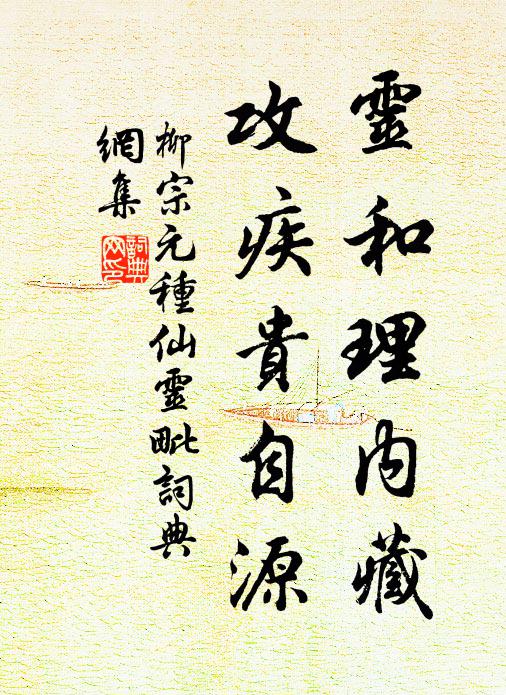 靈和理内藏
攻疾貴自源
柳宗元種仙靈毗詞典
網集
詞典
网印